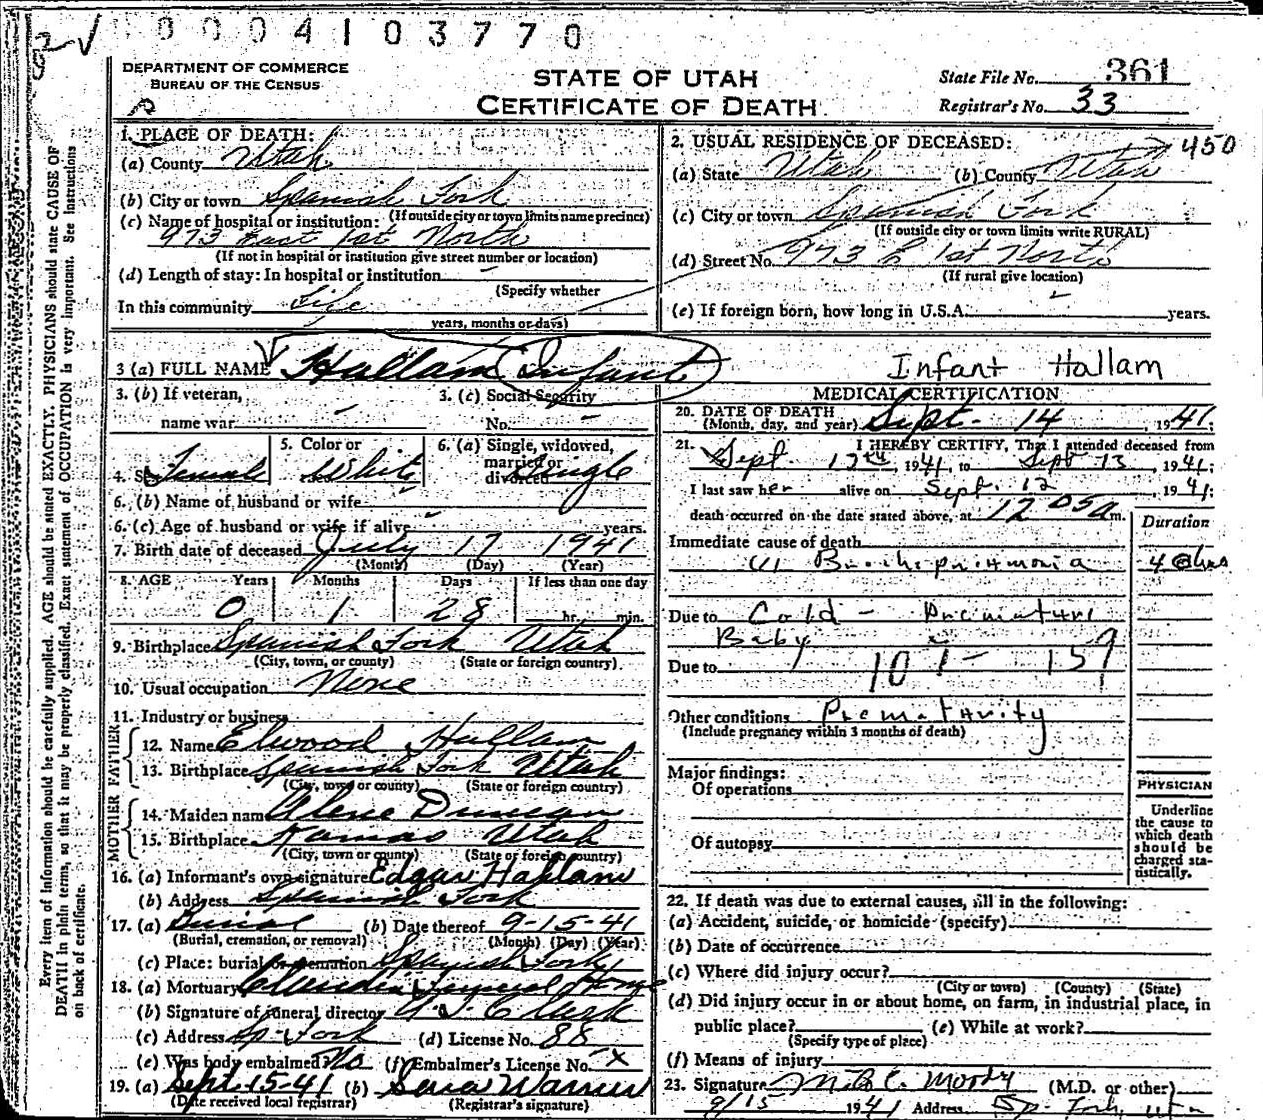 0004103770
DEPARTMENT OF COMMERCE
BUREAU OF THE CENSUS
STATE OF UTAH
CERTIFICATE OF DEATH
State File No. 361
Registrar's No. 33
1. PLACE OF DEATH:
(a) County Utah
(b) City or town Spanish Fork
(If outside city or town limits name precinct)
(c) Name of hospital or institution:
973 East 1st North
(If not in hospital or institution give street number or location)
(d) Length of stay: In hospital or institution -
(Specify whether
In this community Life
years, months or days)
2. USUAL RESIDENCE OF DECEASED: 450
(a) State Utah (b) County Utah
(c) City or town Spanish Fork
(If outside city or town limits write RURAL)
(d) Street No. 973 E 1st North
(If rural give location)
(e) If foreign born, how long in U.S.A. years.
3 (a) FULL NAME Hallam Infant
Infant Hallam
3. (b) If veteran,
name war -
3. (c) Social Security
No. -
4. Sex Female
5. Color or
White
6. (a) Single, widowed,
married or
divorced Single
6. (b) Name of husband or wife
6. (c) Age of husband or wife if alive years.
7. Birth date of deceased July 17 1941
(Month) (Day) (Year)
8. AGE Years Months Days If less than one day
0 1 28 hr. min.
9. Birthplace Spanish Fork Utah
(City, town, or county) (State or foreign country)
10. Usual occupation None
11. Industry or business
FATHER
12. Name Elwood Hallam
13. Birthplace Spanish Fork Utah
(City, town or county) (State or foreign country)
MOTHER
14. Maiden name Arlene Duncan
15. Birthplace Kamas Utah
(City, town or county) (State or foreign country)
16. (a) Informant's own signature Edgar Hallam
(b) Address Spanish Fork
17. (a) Burial (b) Date thereof 9-15-41
(Burial, cremation, or removal) (Month) (Day) (Year)
(c) Place: burial or cremation Spanish Fork
18. (a) Mortuary Funeral Home
(b) Signature of funeral director Clark
(c) Address Sp-Fork (d) License No. 88
(e) Was body embalmed? No (f) Embalmer's License No. - x
19. (a) Sept-15-41 (b) Warner
(Date received local registrar) (Registrar's signature)
MEDICAL CERTIFICATION
20. DATE OF DEATH
(Month, day, and year) Sept. 14, 1941;
21. I HEREBY CERTIFY, That I attended deceased from
Sept. 12th, 1941, to Sept 13, 1941;
I last saw her alive on Sept. 12, 1941;
death occurred on the date stated above, at 12 05 a m.
Duration
Immediate cause of death
Bronchopneumonia
Due to Cold - Premature
Baby
Due to
107 - 159
Other conditions Prematurity
(Include pregnancy within 3 months of death)
Major findings:
Of operations
Of autopsy
PHYSICIAN
Underline
the cause to
which death
should be
charged sta-
tistically.
22. If death was due to external causes, fill in the following:
(a) Accident, suicide, or homicide (specify)
(b) Date of occurrence
(c) Where did injury occur?
(City or town) (County) (State)
(d) Did injury occur in or about home, on farm, in industrial place, in
public place? (e) While at work?
(Specify type of place)
(f) Means of injury
23. Signature C. Moody (M.D. or other)
9/15 1941 Address Sp. Fork, Utah
Every item of information should be carefully supplied. AGE should be stated EXACTLY. PHYSICIANS should state CAUSE OF
DEATH in plain terms, so that it may be properly classified. Exact statement of OCCUPATION is very important. See instructions
on back of certificate.